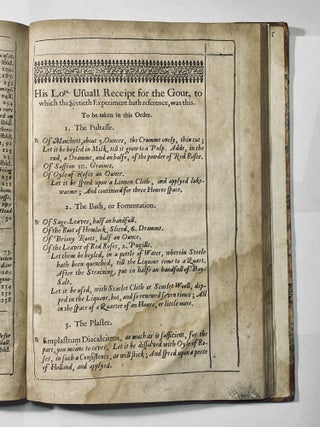 His Lops. Usuall Receipt for the Gout, to
which the Sixtieth Experiment hath reference, was this.
To be taken in this Order.
1. The Pultasse.
℞ Of Manchet, about 3. Ounces, the Crumme onely, thin cut;
Let it be boyled in Milk, till it grow to a Pulp. Adde, in the
end, a Dramme, and an halfe, of the powder of Red Roses.
Of Saffron 10. Graines,
Of Oyle of Roses an Ounce.
Let it be spred upon a Linnen Cloth, and applyed luke-
warme; And continued for three Houres space.
2. The Bath, or Fomentation.
℞ Of Sage-Leaves, half an handfull,
Of the Root of Hemlock, Sliced, 6. Dramms.
Of Briony Roots, half an Ounce.
Of the Leaves of Red Roses, 2. Pugills.
Let them be boyled, in a pottle of Water, wherein Steele
hath been quenched, till the Liquour come to a Quart.
After the Straining, put in halfe an handfull of Bay-
Salt.
Let it be used, with Scarlet Cloth or Scarlet Wooll, dip-
ped in the Liquour, hot, and so renewed seven times; All
in the space of a Quarter of an Houre, or little more.
3. The Plaster.
℞ Emplastrum Diacalciteos, as much as is sufficient, for the
part, you meane to cover. Let it be dissolved with Oyle of Ro-
ses, in such a Consistence, as will stick; And spred upon a peece
of Holland, and applyed.